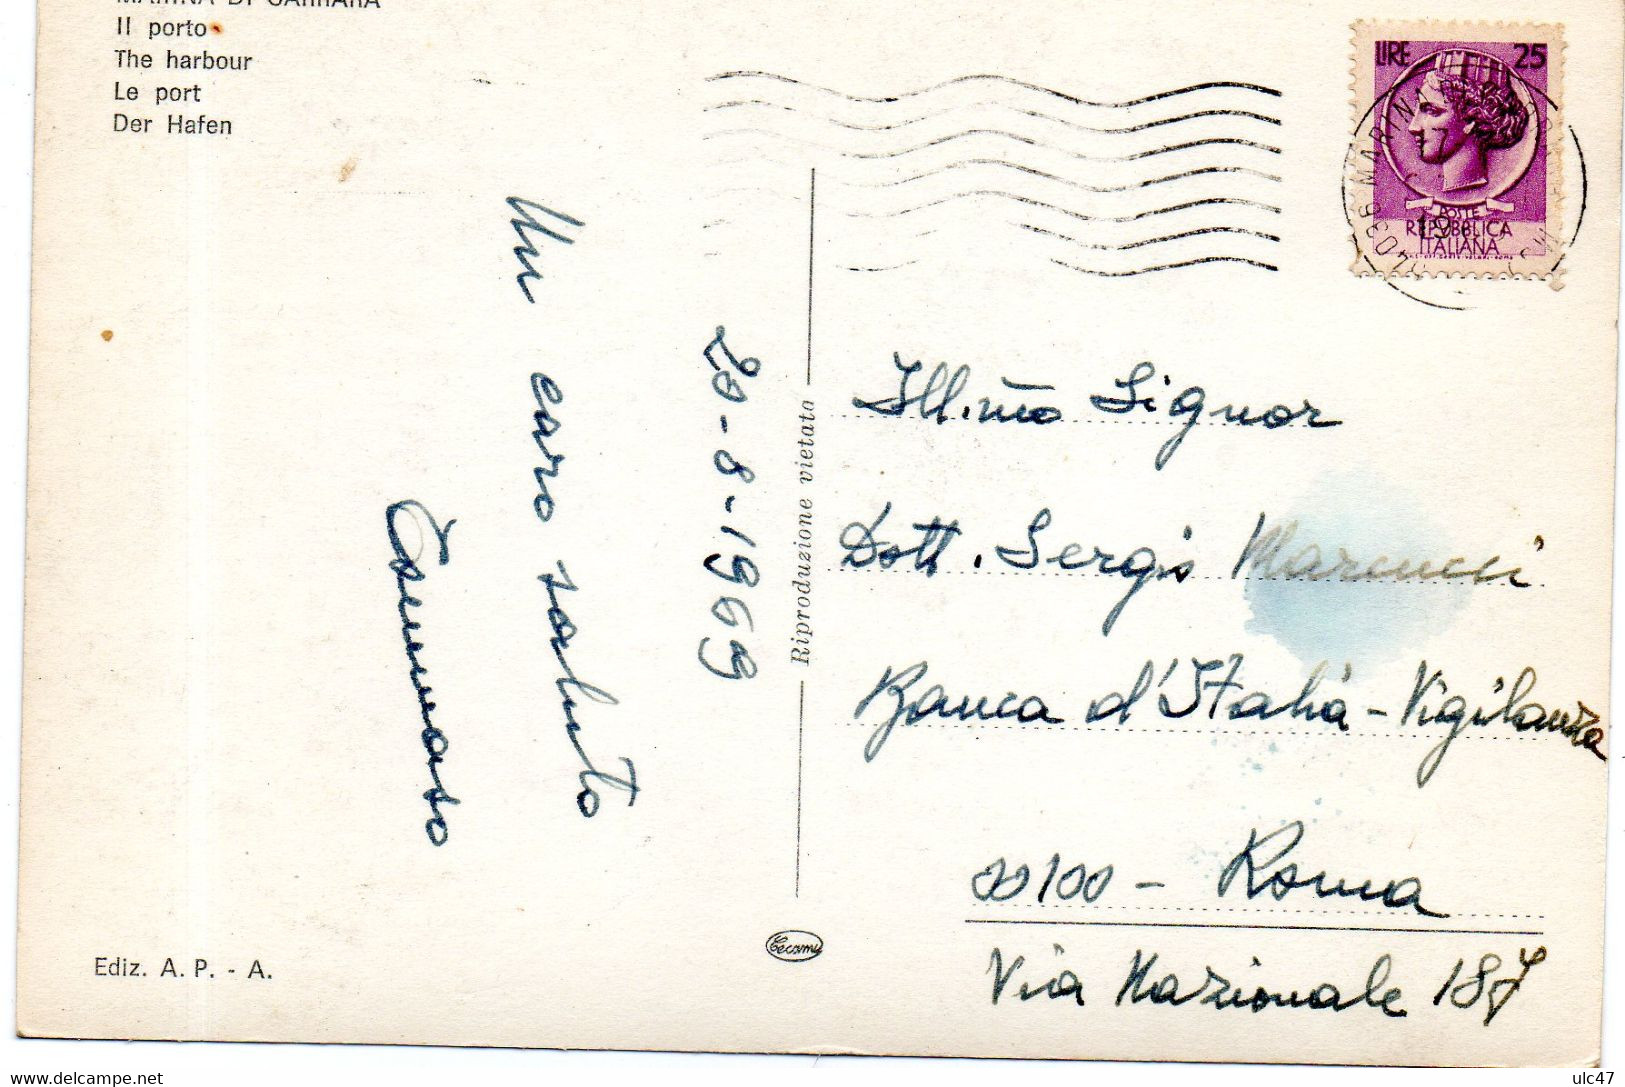 MARINA DI CARRARA
Il porto
The harbour
Le port
Der Hafen
LIRE 25
POSTE
REPVBBLICA
ITALIANA
54036 MARINA
Un caro saluto
Tommaso
20-8-1969
Riproduzione vietata
Ill.mo Signor
Dott. Sergio Marcucci
Banca d'Italia - Vigilanza
00100 - Roma
Via Nazionale 187
Ediz. A. P. - A.
www.delcampe.net
ulc47